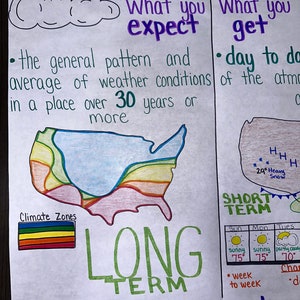 What you
expect
• the general pattern and
average of weather conditions
in a place over 30 years or
more
Climate Zones
LONG
TERM
What you
get
• day to da
of the atm
H H H
29° Heavy
Snow
SHORT
TERM
Mon Tues
sunny sunny partly cloudy
75° 75° 70°
• week
to week
Cha
• d